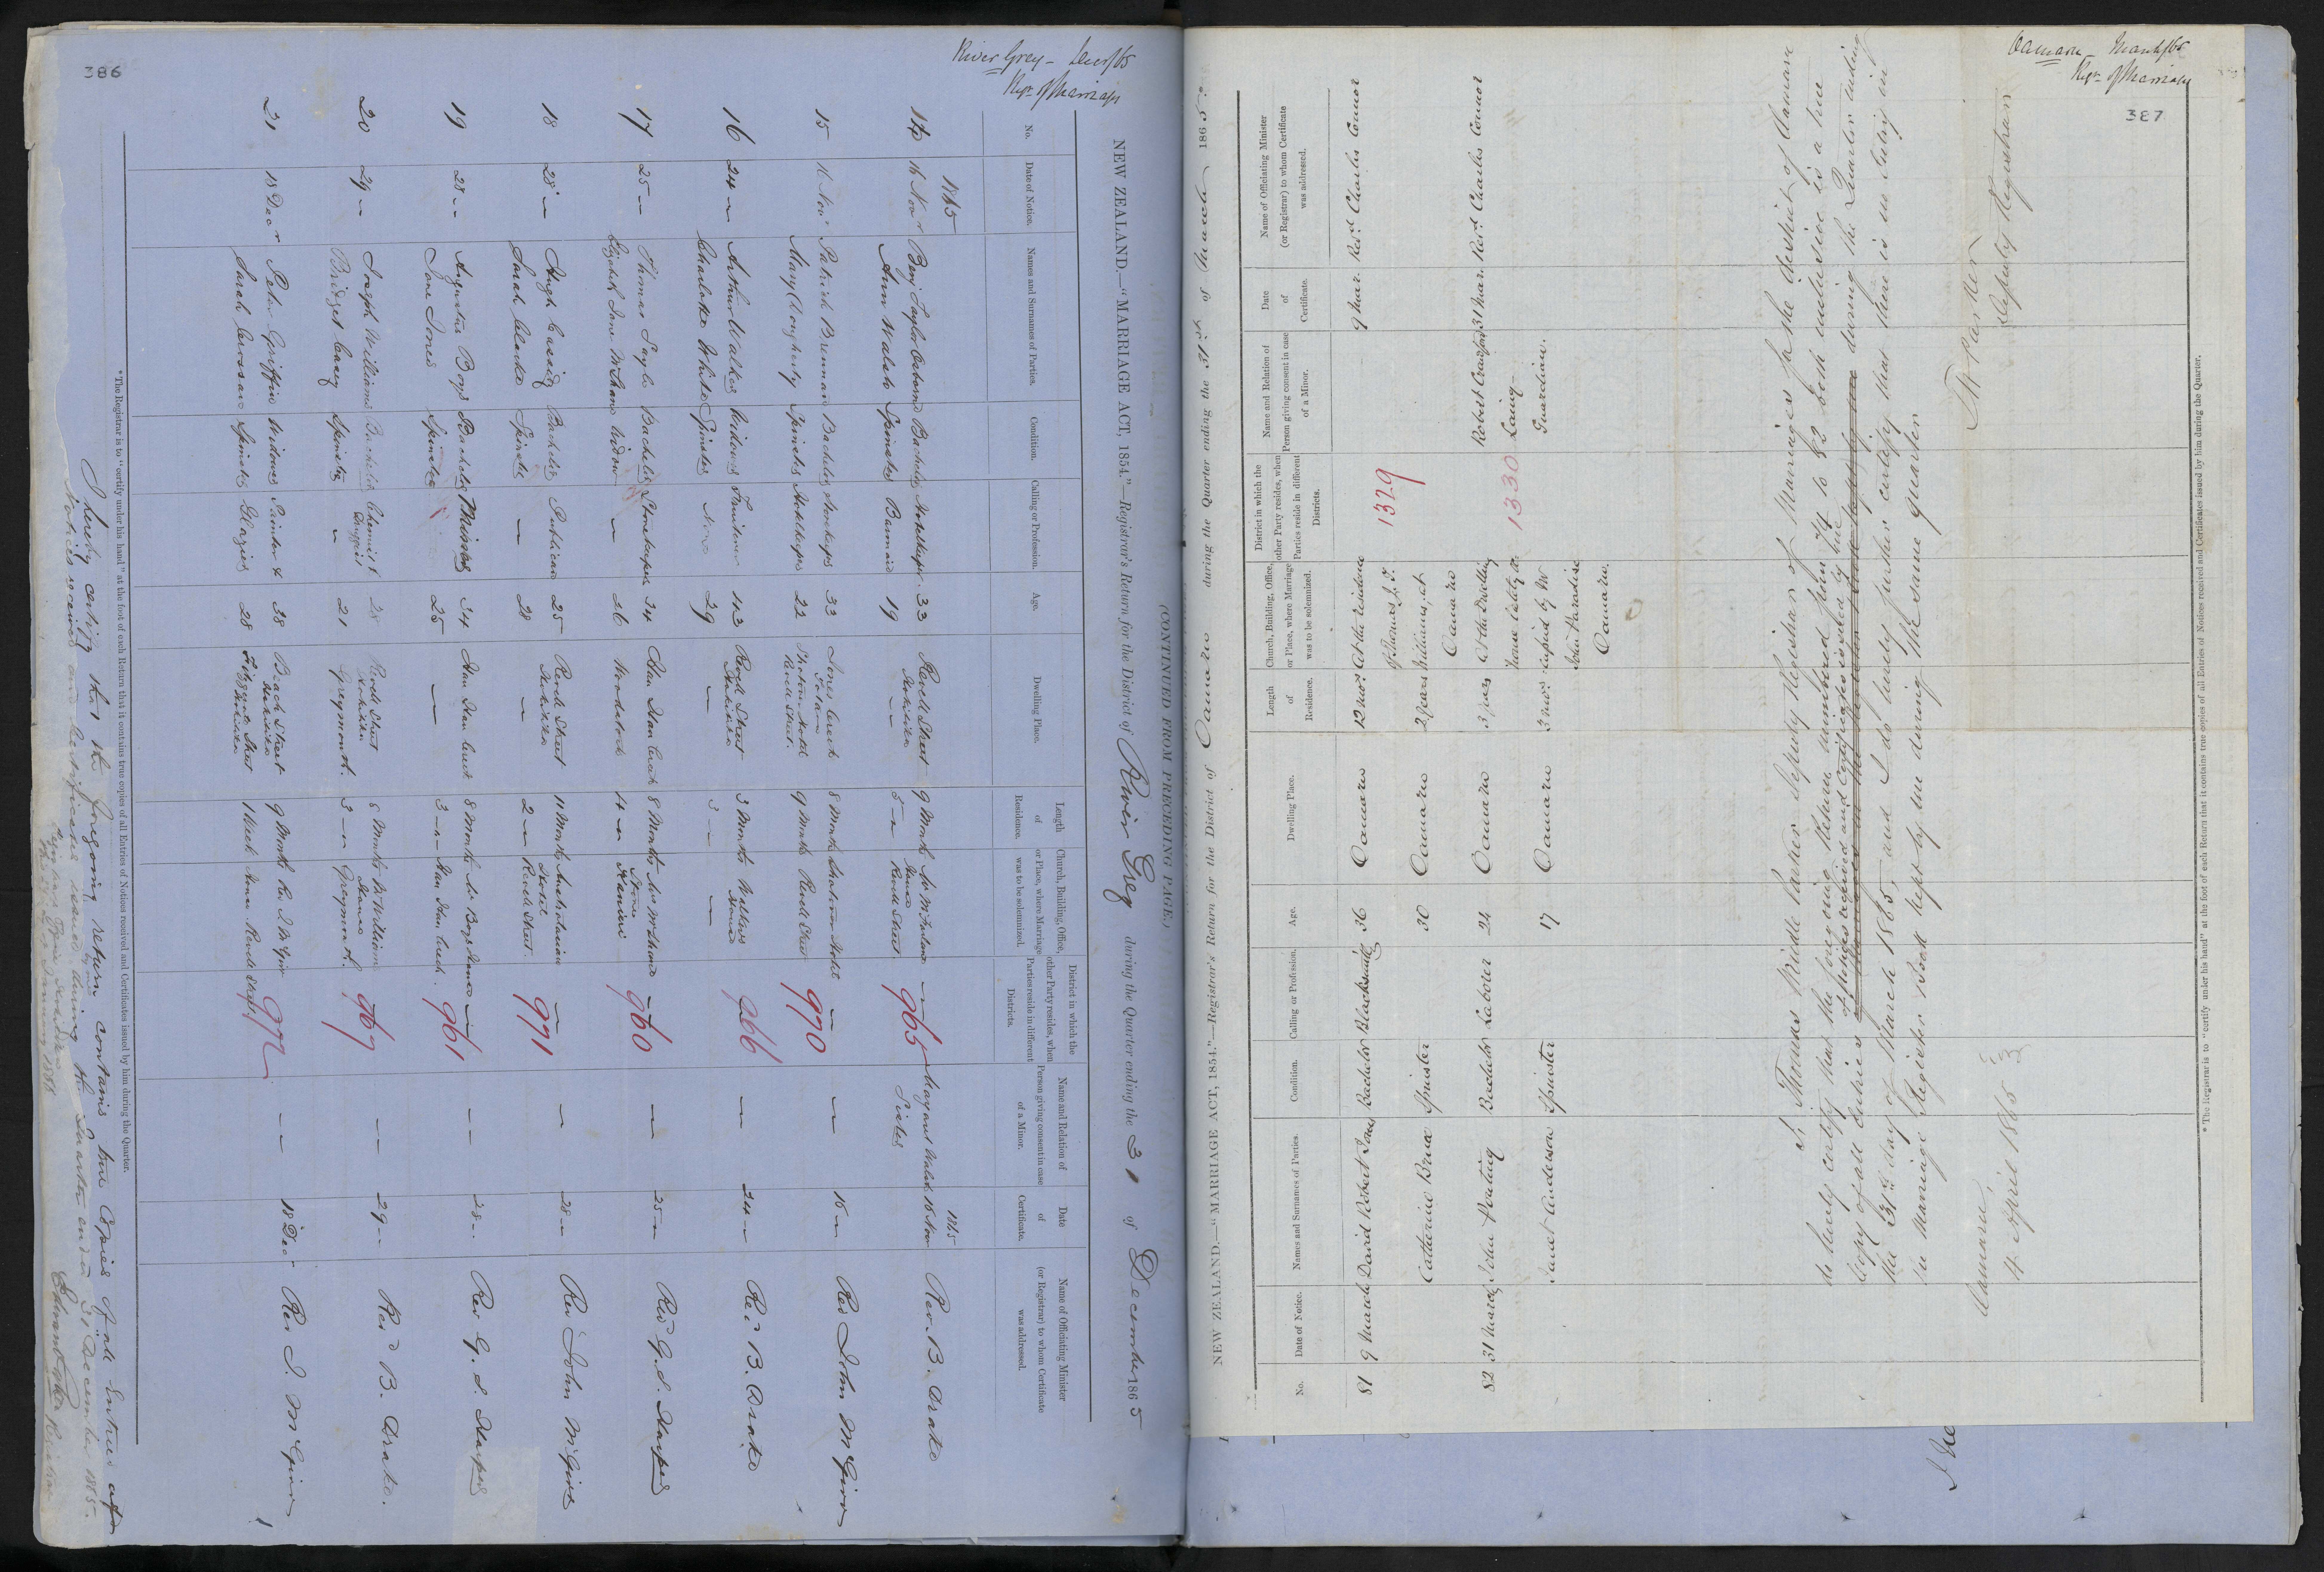 386
River Grey - Decr/65
Regr of Marriages
NEW ZEALAND.—"MARRIAGE ACT, 1854."—Registrar's Return for the District of River Grey during the Quarter ending the 31 of December 1865
(CONTINUED FROM PRECEDING PAGE.)
No. Date of Notice. Names and Surnames of Parties. Condition. Calling or Profession. Age. Dwelling Place. Length of Residence. Church, Building, Office, or Place, where Marriage was to be solemnized. District in which the other Party resides, when Parties reside in different Districts. Name and Relation of Person giving consent in case of a Minor. Date of Certificate. Name of Officiating Minister (or Registrar) to whom Certificate was addressed.
1865 1865
14 16 Nov Benj Taylor Osborne Bachelor Hotelkeeper 33 Revell Street Hokitika 9 Months 965 Margaret Walsh Sister 16 Nov Rev. B. Drake
Ann Walsh Spinster Barmaid 19 — — 5 — Revell Street
15 16 Nov Patrick Brennan Bachelor 33 Jones Creek 8 Months Hotel — 970 — 16 — Rev John McGirr
Mary Clougherty Spinster Hotelkeeper 22 Hotel Revell Street. 9 Months Revell Street
16 24 — Arthur Walker Widower 43 Revell Street Hokitika 3 Months Walkers House 966 — 24 — Rev B. Drake
Charlotte White Spinster None 29 — 3 — —
17 25 — Thomas Sayle Bachelor Storekeeper 34 Kan Kan Creek 8 Months House Kaniere — 960 — 25 — Rev G. S. Harper
Elizabeth Jane McShane Widow — 26 14 —
18 28 — Hugh Cassidy Bachelor Publican 25 Revell Street Hokitika 11 Months Hotel — 971 — 28 — Rev John McGirr
Sarah Clarke Spinster — 28 — 2 — Revell Street.
19 28 — Augustus Boys Bachelor Mining 34 Kan Kan Creek 8 Months Mr Boys House — 961 — 28 — Rev G. S. Harper
Jane Jones Spinster 25 — 3 — Kan Kan Creek.
20 29 — Joseph Williams Bachelor Chemist Druggist 28 Revell Street Hokitika 8 Months Mr Williams House 967 — 29 — Rev B. Drake.
Bridget Casey Spinster — 21 Greymouth. 3 — Greymouth.
21 18 Decr Peter Griffin Widower Painter & 38 Beach Street Hokitika 9 Months Rev J McGirr 972 — 18 Dec Rev J. McGirr
Sarah Crossan Spinster Glazier 28 Fitzgerald Street Hokitika 1 Week House Revell Street
* The Registrar is to "certify under his hand" at the foot of each Return that it contains true copies of all Entries of Notices received and Certificates issued by him during the Quarter.
I hereby certify that the foregoing return contains true Copies of all Entries of
Notices received and Certificates issued by me during the Quarter ended 31 December 1865.
January 1866
Oamaru - March/65
Regr of Marriages
387
NEW ZEALAND.—"MARRIAGE ACT, 1854."—Registrar's Return for the District of Oamaru during the Quarter ending the 31st of March 1865.
No. Date of Notice. Names and Surnames of Parties. Condition. Calling or Profession. Age. Dwelling Place. Length of Residence. Church, Building, Office, or Place, where Marriage was to be solemnized. District in which the other Party resides, when Parties reside in different Districts. Name and Relation of Person giving consent in case of a Minor. Date of Certificate. Name of Officiating Minister (or Registrar) to whom Certificate was addressed.
81 9 March David Robert Jones Bachelor Blacksmith 36 Oamaru 12 mos. At the residence 1329 9 Mar. Revd. Charles Connor
of Thomas J. T.
Catherine Bruce Spinster 30 Oamaru 2 years Williams, at
Oamaru
82 31 March John Ponting Bachelor Laborer 24 Oamaru 3 years At the Dwelling 1330 Robert Crawford 31 Mar. Revd. Charles Connor
house lately Laing
Janet Anderson Spinster 17 Oamaru 3 mos. occupied by Mr Guardian.
John Paradise
Oamaru.
I, Thomas Riddle Parker Deputy Registrar of Marriages for the district of Oamaru
do hereby certify that the foregoing Return numbered from 74 to 82 both inclusive is a true
of Notices received and Certificates issued by me
Copy of all Entries during the Quarter ending
the 31st day of March 1865, and I do hereby further certify that there is no Entry in
the Marriage Register Book kept by me during the same quarter
T R Parker
Deputy Registrar
Oamaru
4 April 1865
* The Registrar is to "certify under his hand" at the foot of each Return that it contains true copies of all Entries of Notices received and Certificates issued by him during the Quarter.